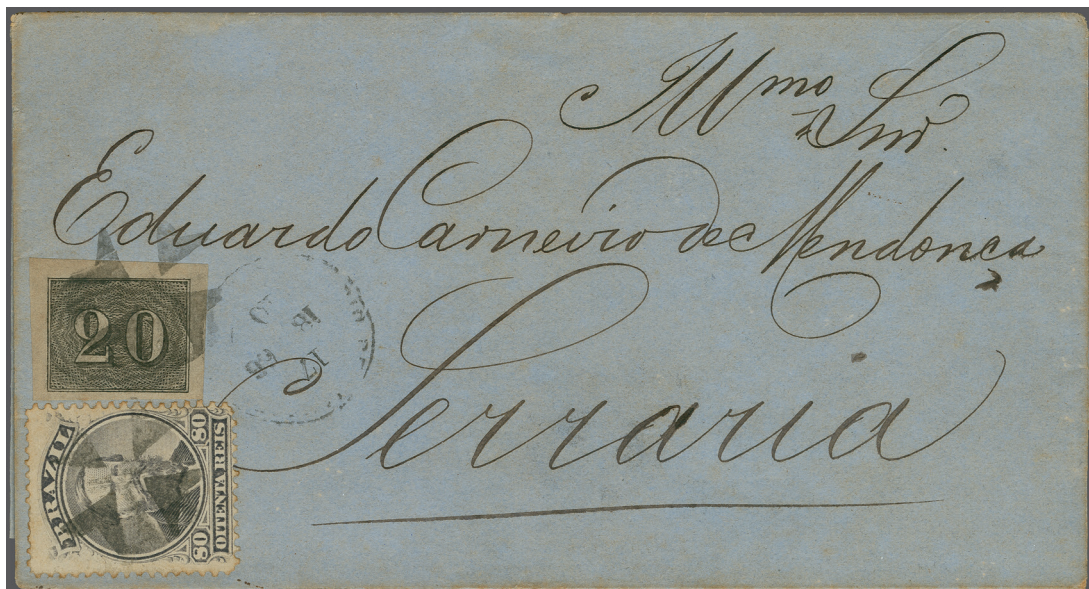 Illmo Snr.
Eduardo Carneiro de Mendonça
Serraria
20
BRAZIL
80
80
REIS OITENTA
18
17